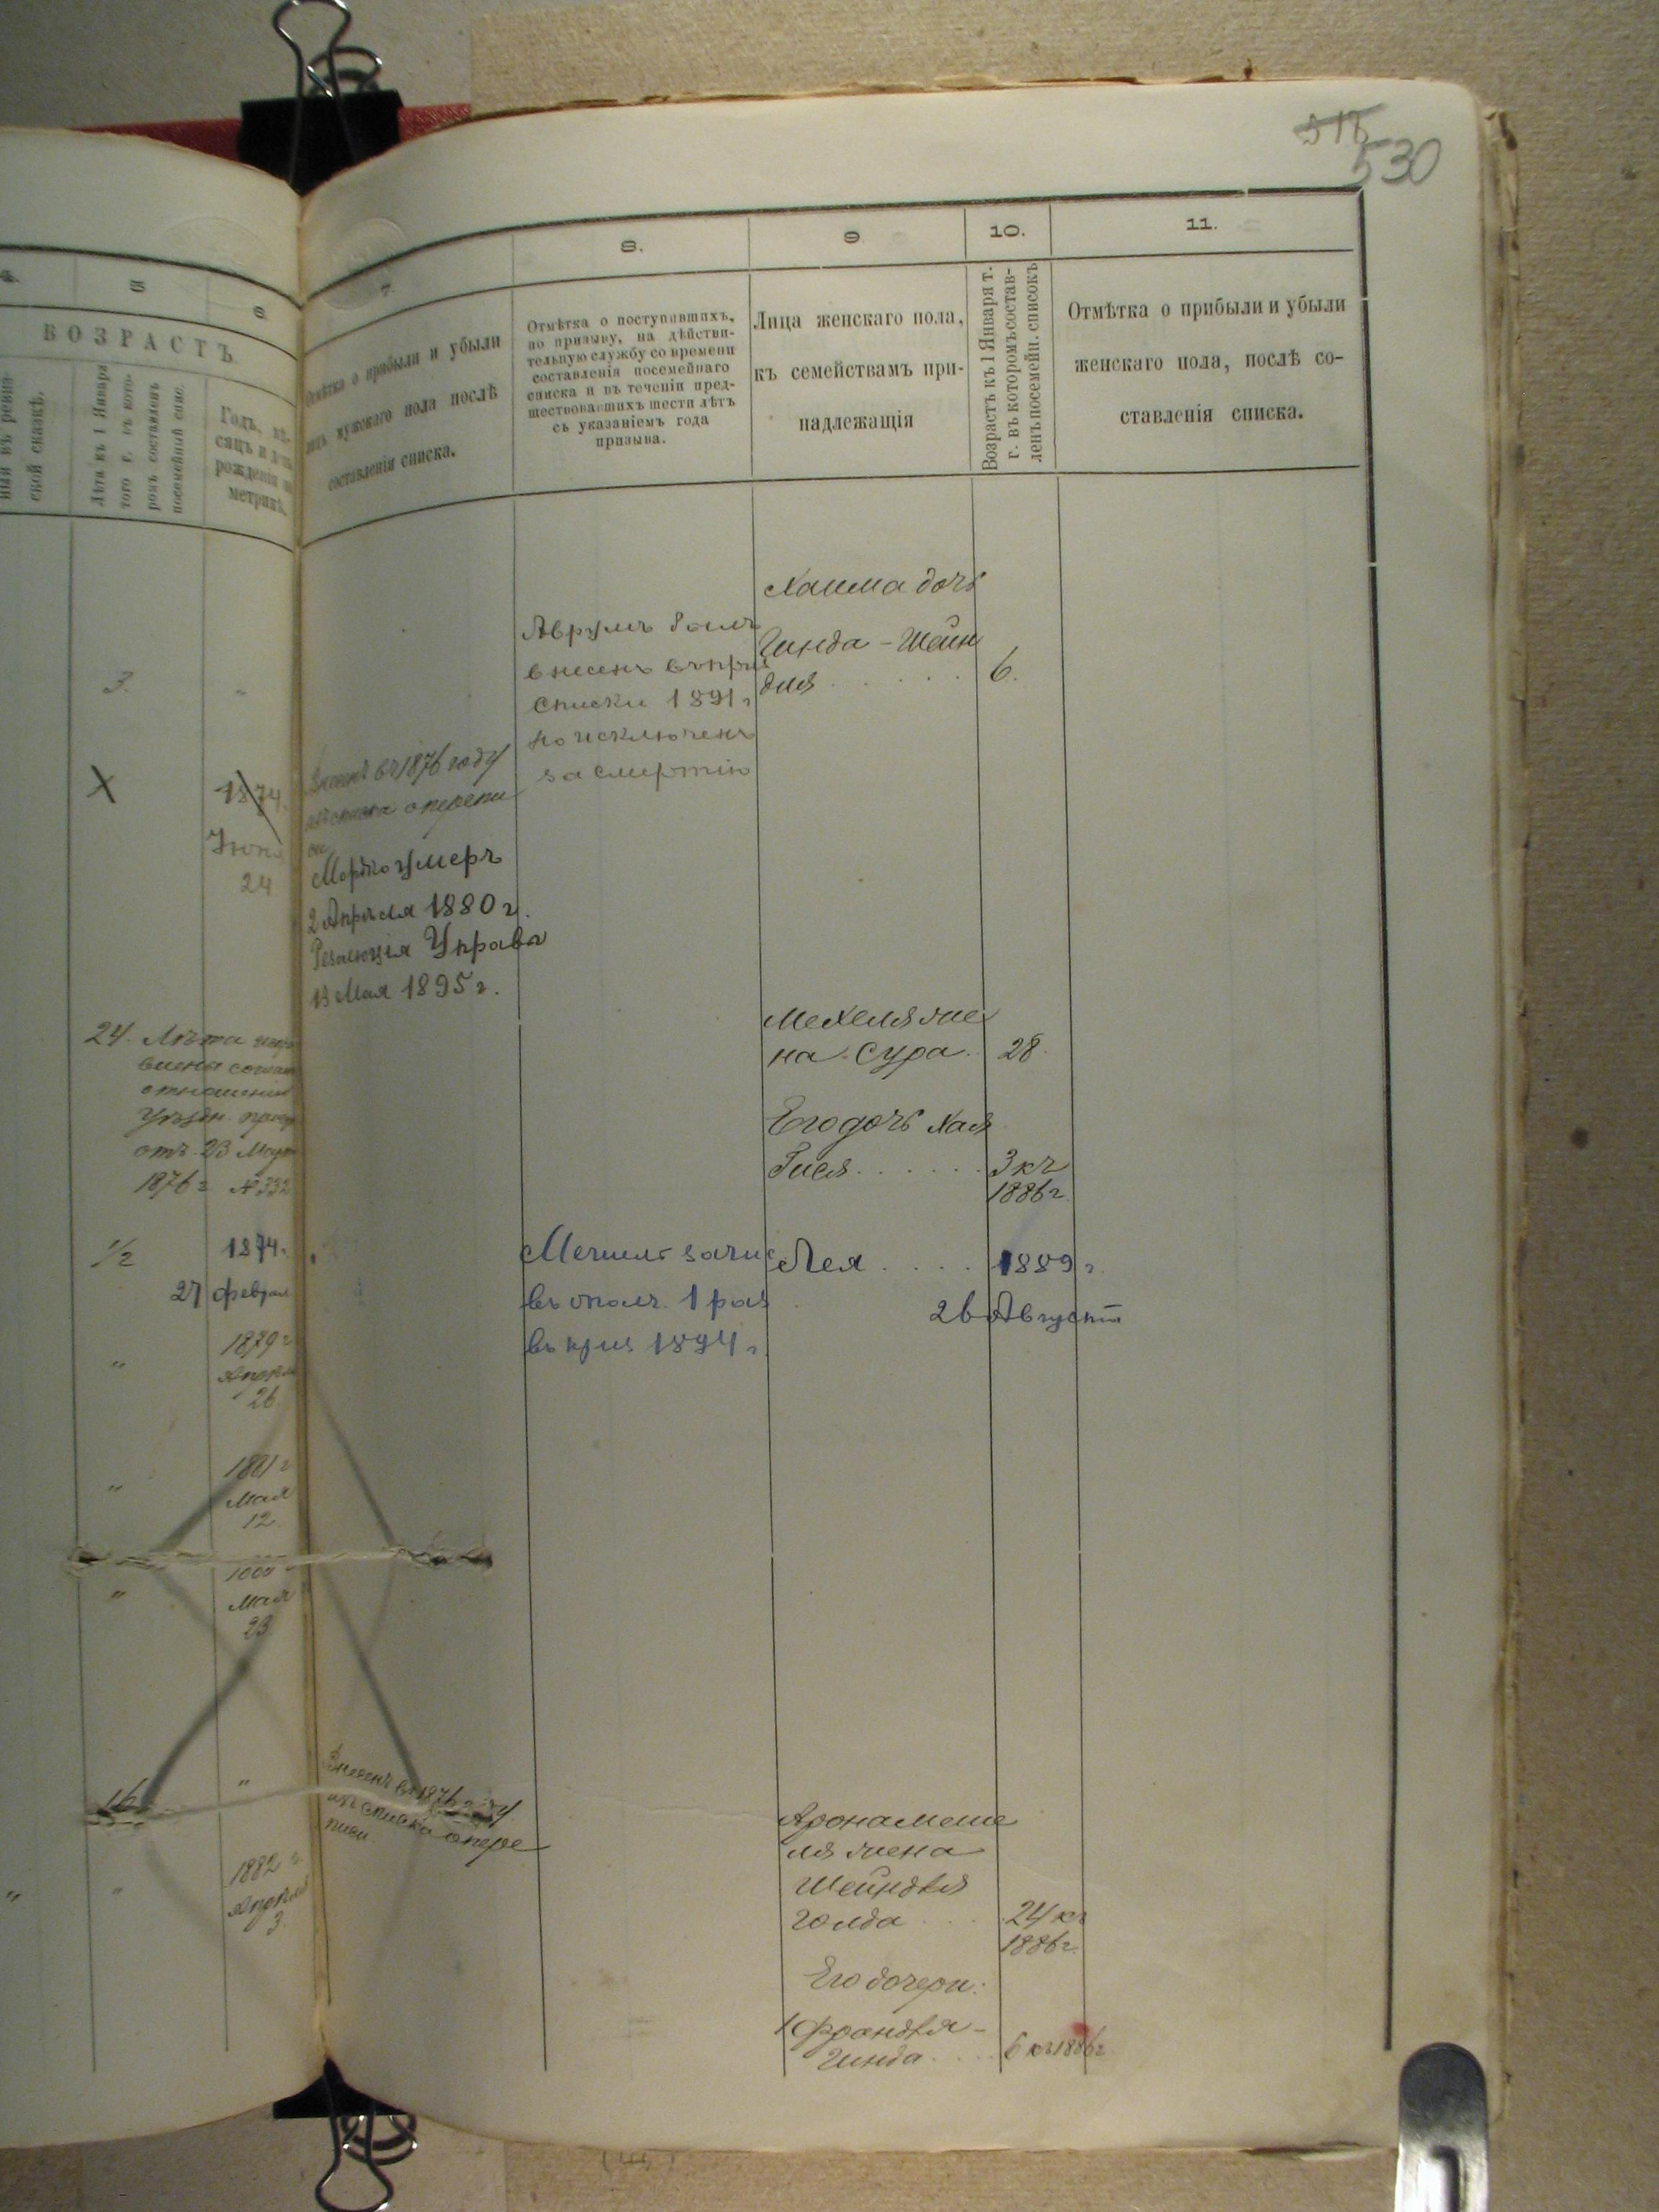 530
4.
5
6.
7.
8.
9
10.
11.
ВОЗРАСТЪ
ской сказкѣ.
Лѣта къ 1 Января
того г. въ кото-
ромъ составленъ
посемейный спис.
Годъ, мѣ-
сяцъ и день
рожденія по
метрикѣ.
Отмѣтка о прибыли и убыли
лицъ мужскаго пола послѣ
составленія списка.
Отмѣтка о поступившихъ,
по призыву, на дѣйстви-
тельную службу со времени
составленія посемейнаго
списка и въ теченіи пред-
шествовавшихъ шести лѣтъ
съ указаніемъ года
призыва.
Лица женскаго пола,
къ семействамъ при-
надлежащія
Возрастъ къ 1 Января т.
г. въ которомъ состав-
ленъ посемейн. списокъ
Отмѣтка о прибыли и убыли
женскаго пола, послѣ со-
ставленія списка.
3.
"
X
1874.
Іюня
24
24. Лѣта
отношенію
отъ 23 Март
1876 г. № 332
1/2
1874.
27 феврал
"
1879 г
Апрѣля
26.
"
1881 г
Мая
12.
"
Мая
23
16
"
"
"
1882 г
Апрѣля
3.
Внесенъ въ 1876 году
изъ списка о перепи
си
Мордко умеръ
2 Апрѣля 1880 г.
Резолюція Управы
13 Мая 1895 г.
Внесенъ въ 1876 году
изъ списка о пере
писи
Аврумъ былъ
внесенъ въ приз
списки 1891 г
но исключенъ
за смертію
зачис
въ ополч. 1 раз
въ приз 1894 г.
Хаима дочь
Гинда - Шейн
для . . . . . 6.
Мехеля же
на Сура. 28.
Его дочь Хая
Гися . . . . . . 3 къ
1886 г.
Лея . . . . 1889 г.
26 Августа
Арона Меше
ля жена
Шейндля
Голда . . . 24 къ
1886 г.
Его дочери:
1 Франдля -
Гинда . . . . 6 къ 1886 г.